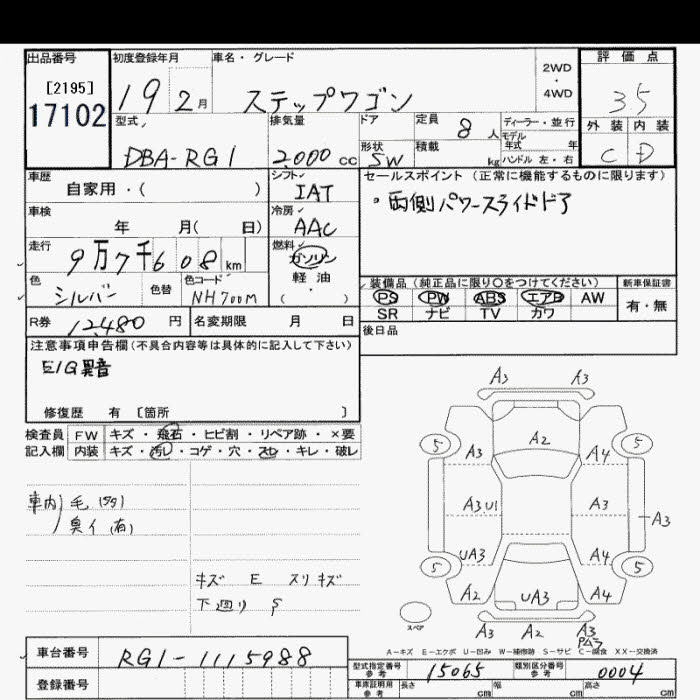 出品番号 初度登録年月 車名・グレード 2WD・4WD 評価点
[2195]
17102
19 2月 ステップワゴン 35
型式 排気量 ドア 定員 8人 ディーラー・並行 外装 内装
モデル年式 年
DBA-RG1 2000cc 形状 SW 積載 kg ハンドル 左・右 C D
車歴 シフト セールスポイント (正常に機能するものに限ります)
自家用・( ) IAT
・両側パワースライドドア
車検 冷房
年 月( 日) AAC
走行 燃料
9万7千608km ガソリン
軽油・( )
色 色替 色コード 装備品 (純正品に限り〇をつけてください) 新車保証書
シルバー NH700M PS PW ABS エアB AW 有・無
SR ナビ TV カワ
R券 12,480円 名変期限 月 日 後日品
注意事項申告欄(不具合内容等は具体的に記入して下さい)
E/G異音
修復歴 有 [箇所 ]
検査員 FW キズ・飛石・ヒビ割・リペア跡・×要
記入欄 内装 キズ・汚レ・コゲ・穴・スレ・キレ・破レ
車内 毛
臭イ(有)
キズ E スリキズ
下廻り S
A3 A3
A2
5 5
A3 A4
A3U1 A3
A3
UA3 A4
5 5
A2 UA3 A4
スペア
A3 A2 A3
A-キズ E-エクボ U-凹み W-補修跡 S-サビ C-腐食 XX-交換済
車台番号 RG1-1115988
型式指定番号 参考 15065 類別区分番号 参考 0004
登録番号
車庫証明用 参考 長さ cm 幅 cm 高さ cm